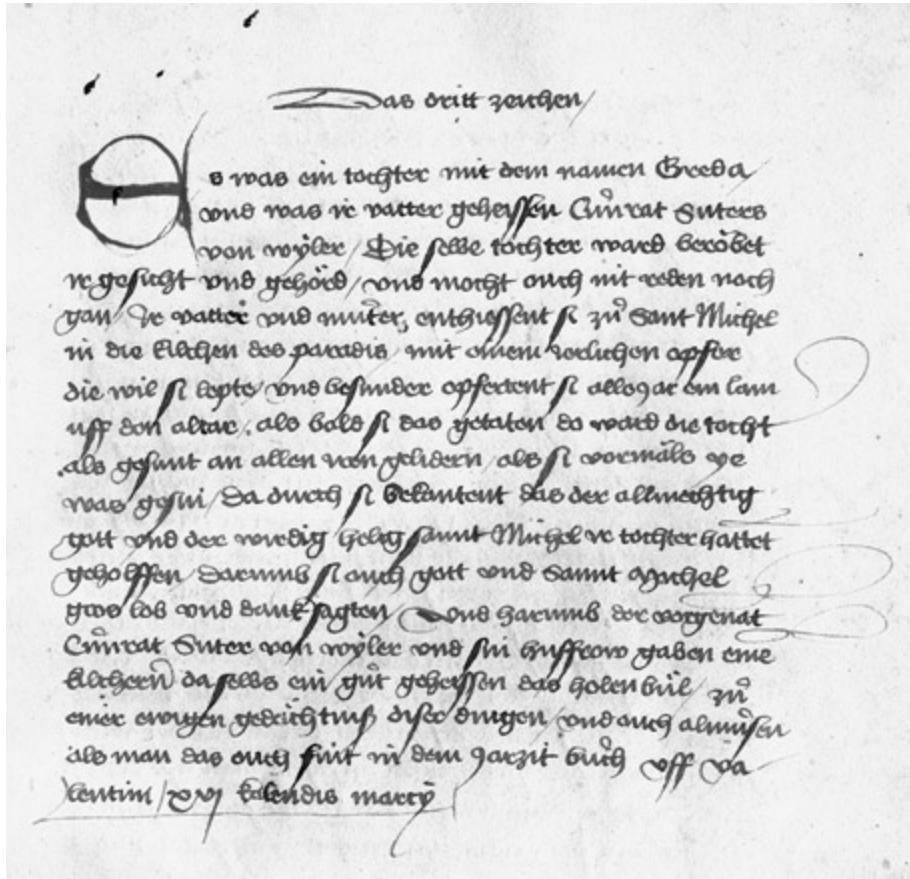 Das dritt zeichen /
Es was ein tochter mit dem namen Greda
vnd was ir vatter geheissen Cůnrat Suters
von wÿler / Die selbe tochter ward beröbet
ir gesicht vnd gehörd / vnd mocht ouch nit reden noch
gan / Ir vatter vnd můter, enthiessent si zů Sant Michel
in die kilchen des paradis mit einem ierlichen opfer
die wil si lepte / vnd besunder opfertent si alle jar ein lam
uff den altar . als bald si das getaten do ward die tocht
als gesunt an allen iren gelidern / als si vormäls ye
was gesin / da durch si bekantent das der allmechtig
gott vnd der wirdig helig sannt Michel ir tochter hattet
geholffen / darumb si auch gott vnd Sannt Michel
gros lob vnd dank sagten / Vnd harumb der vorgenāt
Cůnrat Suter von wÿler vnd sin husfrow gaben eine
kilcherrn da selbs ein gůt geheissen das holenbül / zů
einer ewigen gedächtnus diser dingen / vnd auch almůsen
als man das ouch fint in dem jarzit bůch vff va
lentini / xvj kalendis marcÿ